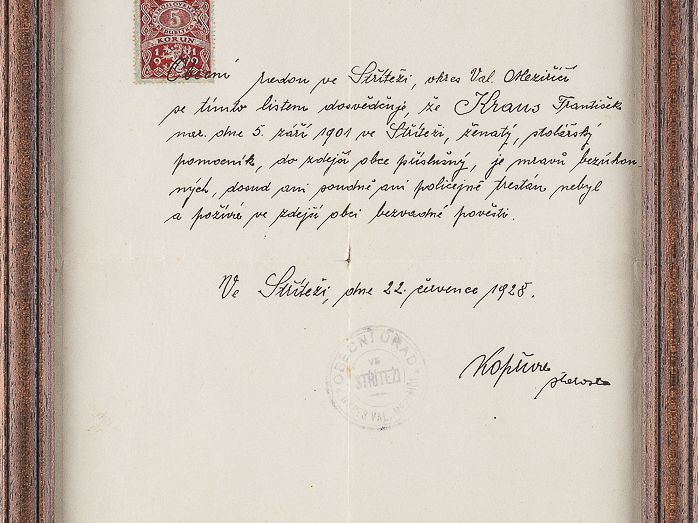 5
KORUN
Obecní úřadou ve Stříteži, okres Val. Meziříčí
se tímto listem dosvědčuje, že Kraus František
nar. dne 5. září 1901 ve Stříteži, ženatý, stolářský
pomocník, do zdejší obce příslušný, je mravů bezúhon-
ných, dosud ani soudně ani policejně trestán nebyl
a požívá ve zdejší obci bezvadné pověsti.
Ve Stříteži, dne 22. července 1928.
OBECNÍ ÚŘAD
VE
STŘÍTEŽI
VAL.
starosta